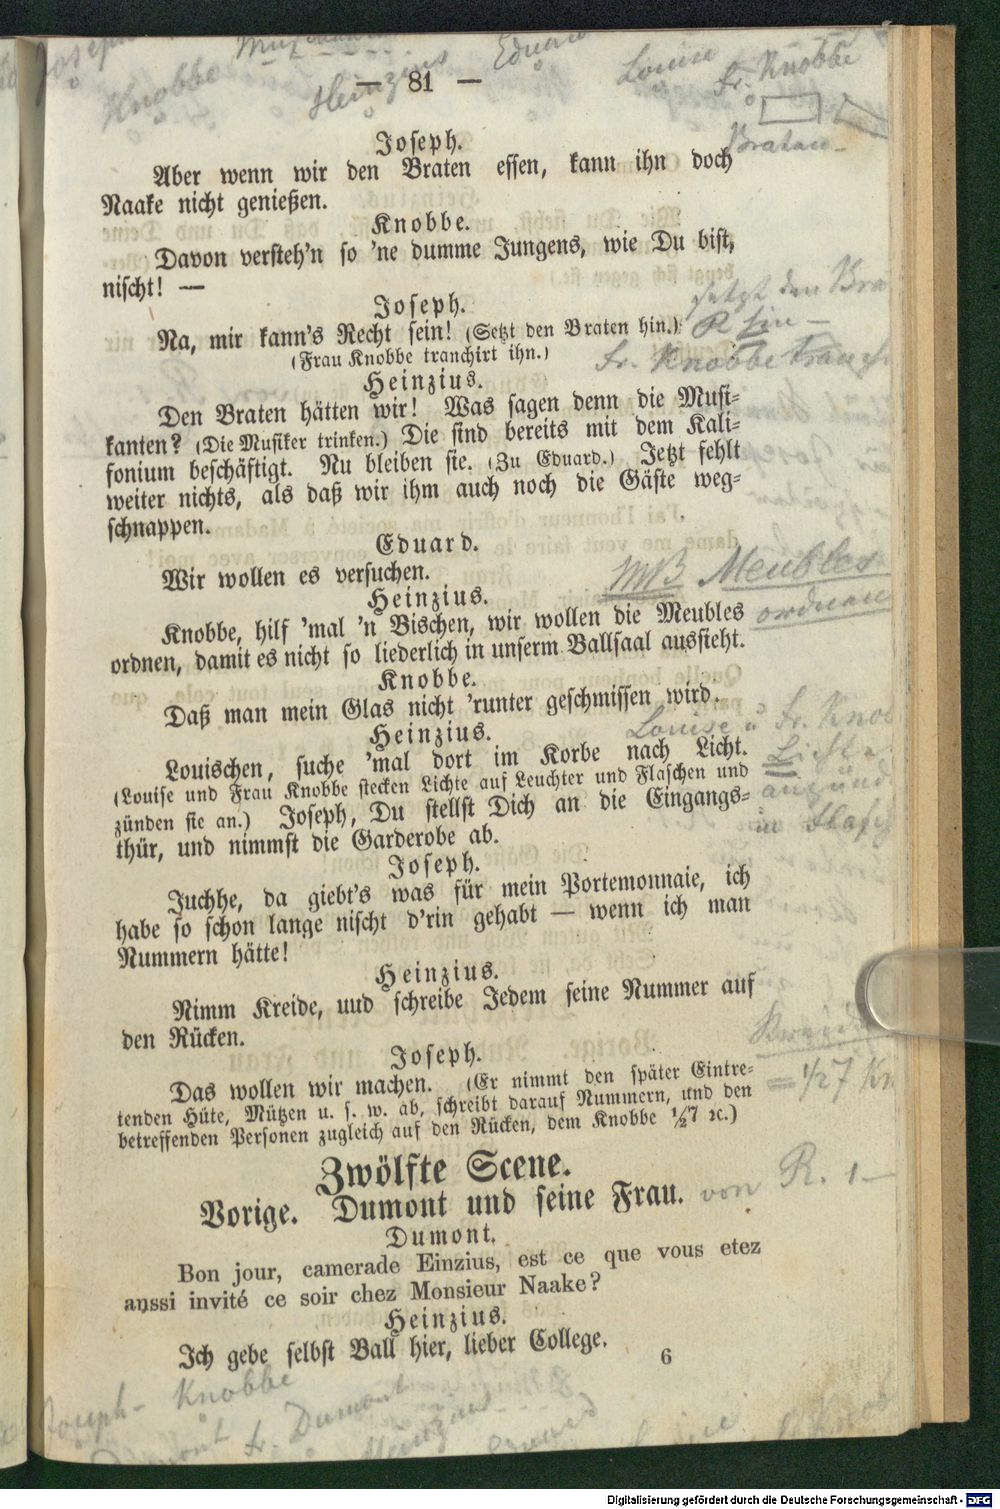 Joseph Musikanten Eduard Louise Fr. Knobbe
Knobbe Heinzius
Braten
— 81 —
Joseph.
Aber wenn wir den Braten essen, kann ihn doch
Naake nicht genießen.
Knobbe.
Davon versteh'n so 'ne dumme Jungens, wie Du bist,
nischt! —
Joseph.
setzt den Bra
Na, mir kann's Recht sein! (Setzt den Braten hin.)
R hin —
(Frau Knobbe tranchirt ihn.)
Fr. Knobbe tranch
Heinzius.
Den Braten hätten wir! Was sagen denn die Musi-
kanten? (Die Musiker trinken.) Die sind bereits mit dem Kali-
fonium beschäftigt. Nu bleiben sie. (Zu Eduard.) Jetzt fehlt
weiter nichts, als daß wir ihm auch noch die Gäste weg-
schnappen.
Eduard.
Wir wollen es versuchen.
Meubles
ordnen
Heinzius.
Knobbe, hilf 'mal 'n Bischen, wir wollen die Meubles
ordnen, damit es nicht so liederlich in unserm Ballsaal aussieht.
Knobbe.
Daß man mein Glas nicht 'runter geschmissen wird.
Louise u Fr. Knob
Heinzius.
Louischen, suche 'mal dort im Korbe nach Licht.
Lichte
(Louise und Frau Knobbe stecken Lichte auf Leuchter und Flaschen und
anzünd
zünden sie an.) Joseph, Du stellst Dich an die Eingangs-
in Flasch
thür, und nimmst die Garderobe ab.
Joseph.
Juchhe, da giebt's was für mein Portemonnaie, ich
habe so schon lange nischt d'rin gehabt — wenn ich man
Nummern hätte!
Heinzius.
Nimm Kreide, uud schreibe Jedem seine Nummer auf
den Rücken.
Joseph.
Das wollen wir machen. (Er nimmt den später Eintre-
= 1/27 Kn
tenden Hüte, Mützen u. s. w. ab, schreibt darauf Nummern, und den
betreffenden Personen zugleich auf den Rücken, dem Knobbe 1/27 ꝛc.)
Zwölfte Scene.
Vorige. Dumont und seine Frau.
von R. 1 —
Dumont.
Bon jour, camerade Einzius, est ce que vous etez
aussi invité ce soir chez Monsieur Naake?
Heinzius.
Ich gebe selbst Ball hier, lieber College.
6
Joseph — Knobbe
Dumont Fr. Dumont Heinzius Eduard Fr. Knob
Digitalisierung gefördert durch die Deutsche Forschungsgemeinschaft - DFG